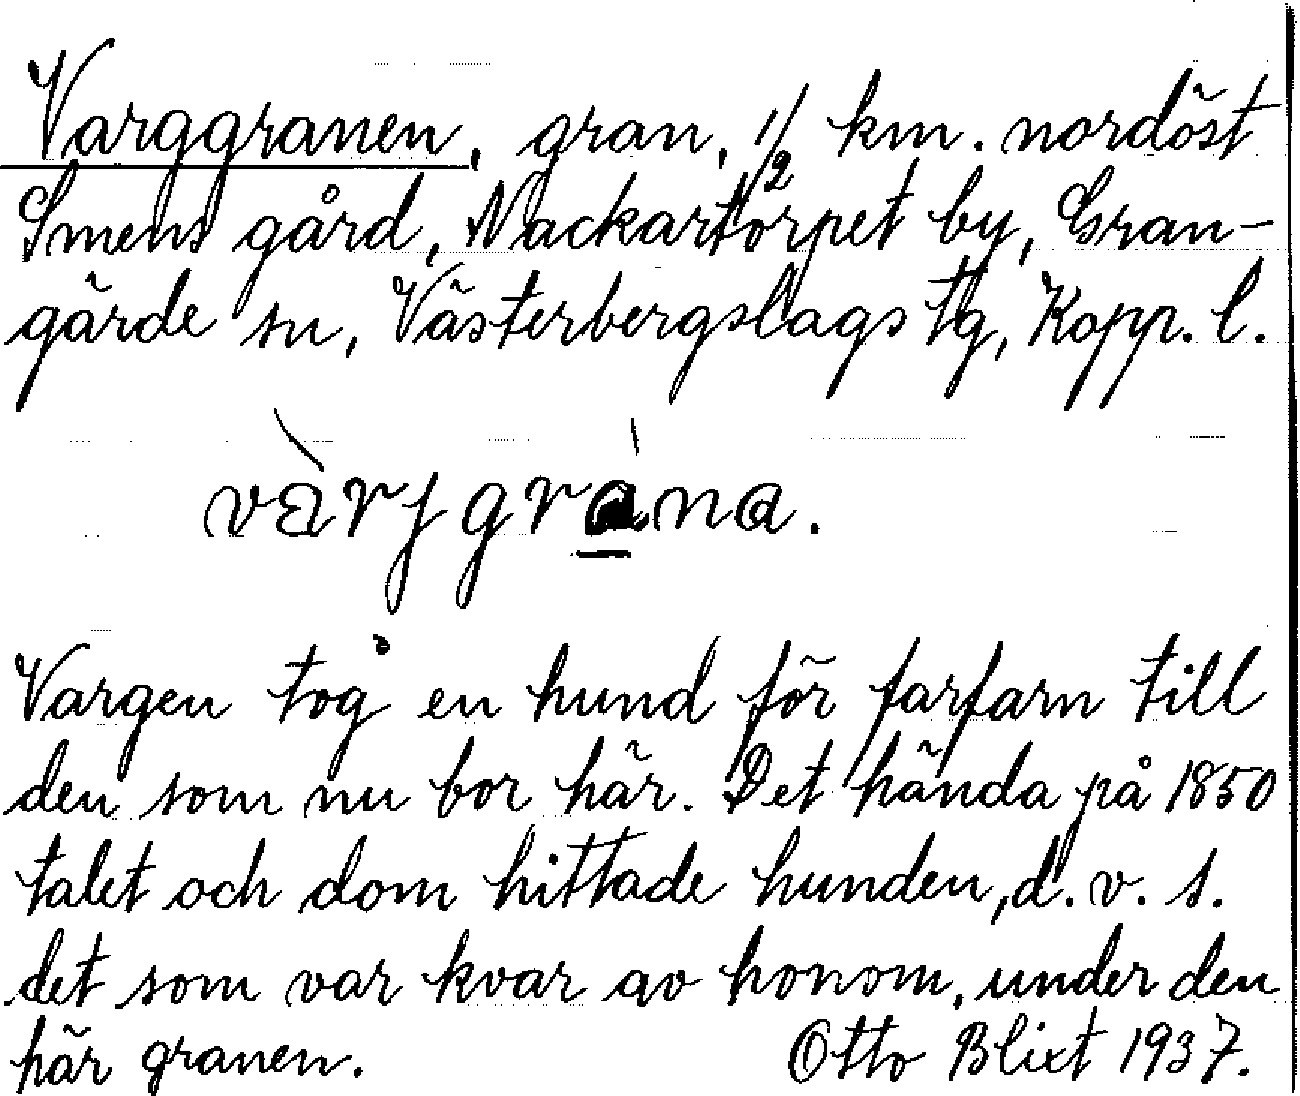 Varggranen, gran, 1/2 km. nordöst
Smens gård, Nackartorpet by, Gran-
gärde sn, Västerbergslags tg, Kopp. l.
và̠rjgrána.
Vargen tog en hund för farfarn till
den som nu bor här. Det hända på 1850
talet och dom hittade hunden, d. v. s.
det som var kvar av honom, under den
här granen. Otto Blixt 1937.